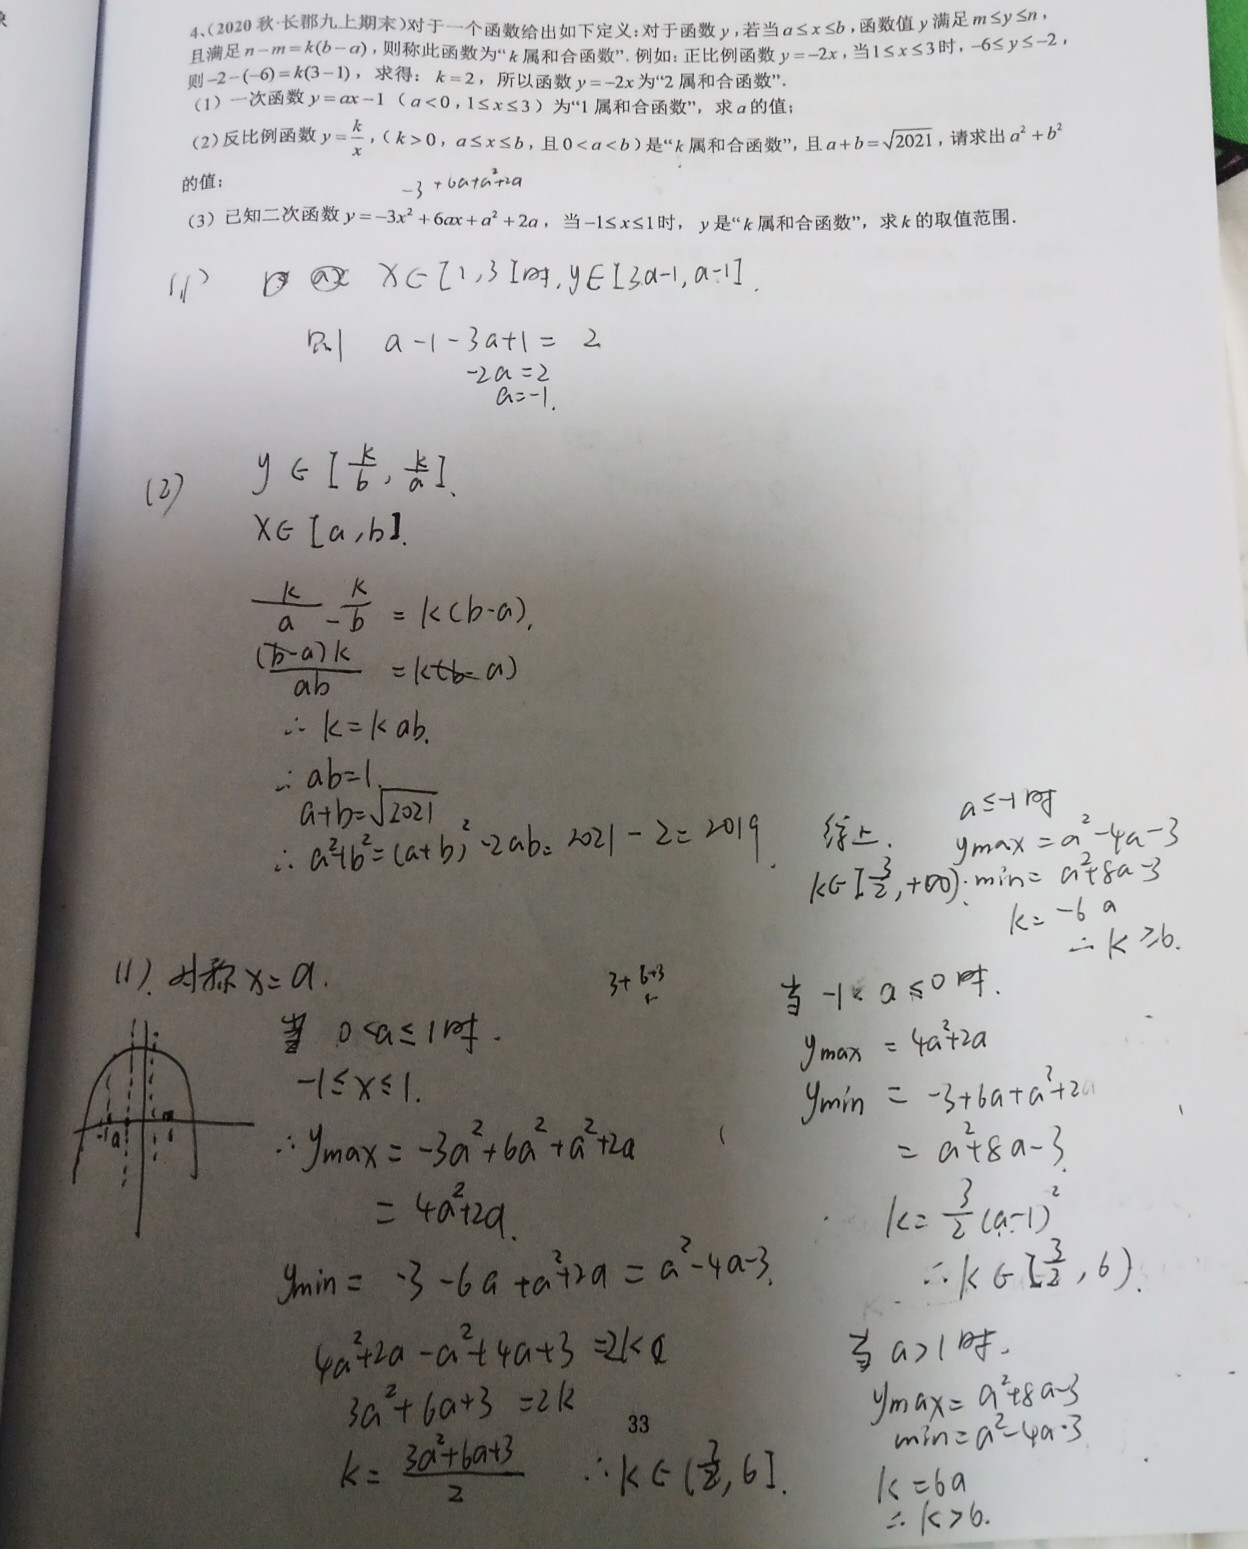 4、(2020 秋·长郡九上期末)对于一个函数给出如下定义:对于函数 y,若当 a≤x≤b,函数值 y 满足 m≤y≤n,
且满足 n-m=k(b-a),则称此函数为“k 属和合函数”. 例如:正比例函数 y=-2x,当 1≤x≤3 时,-6≤y≤-2,
则 -2-(-6)=k(3-1),求得:k=2,所以函数 y=-2x 为“2 属和合函数”.
(1)一次函数 y=ax-1(a<0,1≤x≤3)为“1 属和合函数”,求 a 的值;
(2)反比例函数 y=k/x,(k>0,a≤x≤b,且 0<a<b)是“k 属和合函数”,且 a+b=√2021,请求出 a²+b²
的值;
-3+6a+a²+2a
(3)已知二次函数 y=-3x²+6ax+a²+2a,当 -1≤x≤1 时,y 是“k 属和合函数”,求 k 的取值范围.
(1) x∈[1,3]时,y∈[3a-1,a-1].
则 a-1-3a+1=2
-2a=2
a=-1.
(2) y∈[k/b,k/a].
x∈[a,b].
k/a-k/b=k(b-a).
(b-a)k/ab=k(b-a)
∴k=kab.
∴ab=1.
a+b=√2021
∴a²+b²=(a+b)²-2ab=2021-2=2019.
综上.
k∈[3/2,+∞).
a≤-1时
ymax=a²-4a-3
min=a²+8a-3
k=-6a
∴k≥6.
(1).对称x=a.
当 0<a≤1时.
-1≤x≤1.
∴ymax=-3a²+6a²+a²+2a
=4a²+2a.
ymin=-3-6a+a²+2a=a²-4a-3.
4a²+2a-a²+4a+3=2k
3a²+6a+3=2k
k=3a²+6a+3/2 ∴k∈(3/2,6].
-1 a
当 -1<a≤0时.
ymax=4a²+2a
ymin=-3+6a+a²+2a
=a²+8a-3.
k=3/2(a-1)²
∴k∈[3/2,6).
当 a>1时.
ymax=a²+8a-3
min=a²-4a-3
k=6a
∴k>6.
33